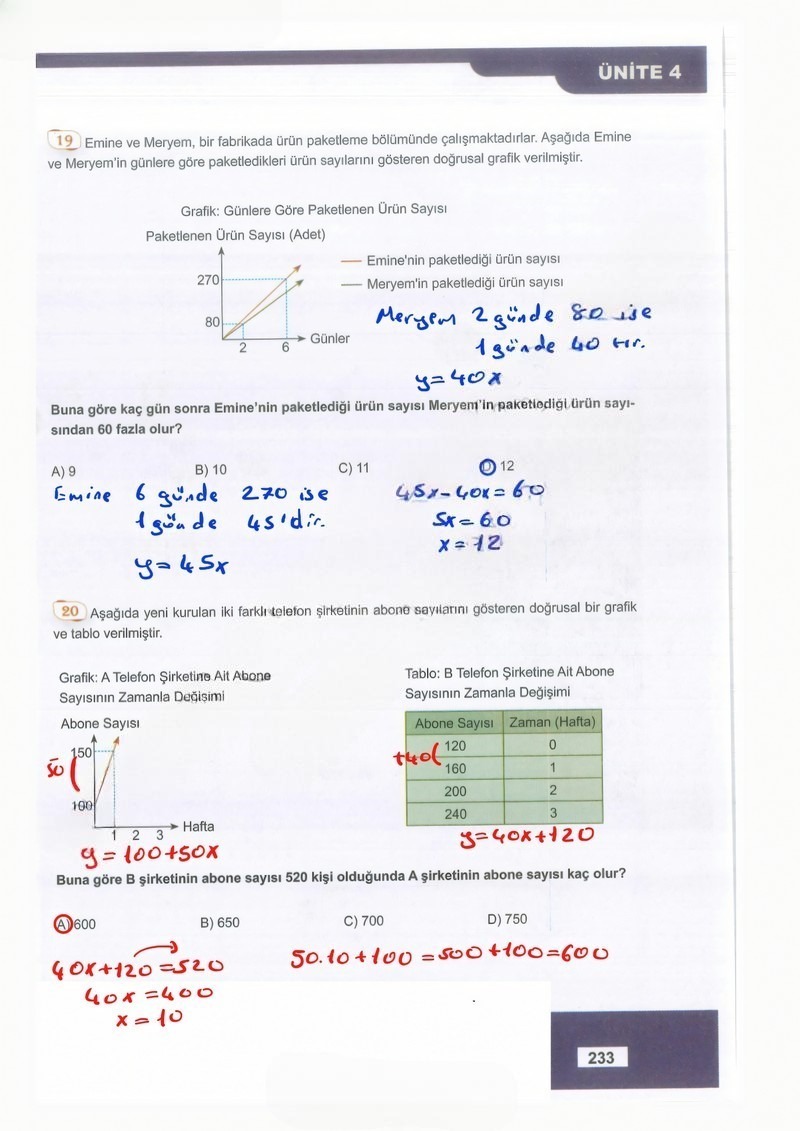 ÜNİTE 4
19 Emine ve Meryem, bir fabrikada ürün paketleme bölümünde çalışmaktadırlar. Aşağıda Emine
ve Meryem'in günlere göre paketledikleri ürün sayılarını gösteren doğrusal grafik verilmiştir.
Grafik: Günlere Göre Paketlenen Ürün Sayısı
Paketlenen Ürün Sayısı (Adet)
Emine'nin paketlediği ürün sayısı
Meryem'in paketlediği ürün sayısı
270
80
2 6 Günler
Meryem 2 günde 80 ise
1 günde 40 tır.
y=40x
Buna göre kaç gün sonra Emine'nin paketlediği ürün sayısı Meryem'in paketlediği ürün sayı-
sından 60 fazla olur?
A) 9 B) 10 C) 11 D) 12
Emine 6 günde 270 ise
1 günde 45'dir.
y=45x
45x-40x=60
5x=60
x=12
20 Aşağıda yeni kurulan iki farklı telefon şirketinin abone sayılarını gösteren doğrusal bir grafik
ve tablo verilmiştir.
Grafik: A Telefon Şirketine Ait Abone
Sayısının Zamanla Değişimi
Abone Sayısı
150
50
100
1 2 3 Hafta
y=100+50x
Tablo: B Telefon Şirketine Ait Abone
Sayısının Zamanla Değişimi
Abone Sayısı Zaman (Hafta)
120 0
+40
160 1
200 2
240 3
y=40x+120
Buna göre B şirketinin abone sayısı 520 kişi olduğunda A şirketinin abone sayısı kaç olur?
A) 600 B) 650 C) 700 D) 750
40x+120=520
40x=400
x=10
50.10+100=500+100=600
233